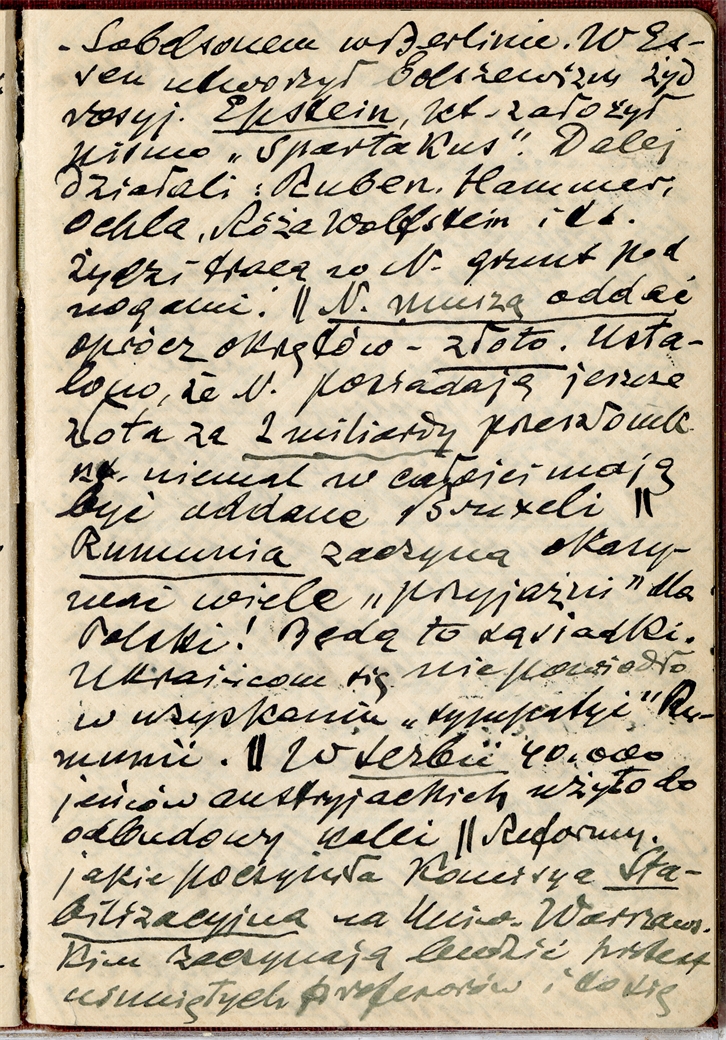 - Sobelsonem w Berlinie. W Es-
sen utworzył bolszewizm żyd
rosyj. Epstein, kt. założył
pismo „Spartakus". Dalej
działali: Ruben. Hammer,
Ochla, Róża Wolfstein i t.d.
Żydzi tracą w N. grunt pod
nogami! || N. muszą oddać
oprócz okrętów - złoto. Usta-
lono, że N. posiadają jeszcze
złota za 2 miliardy przeszło mk.
niemal w całości mają
być oddane Bruxeli ||
Rumunia zaczyna okazy-
wać wiele „przyjaźni" dla
Polski! Będą to sąsiadki.
Ukraińcom się nie powiodło
w uzyskaniu „sympatyi" Ru-
munii. || W Serbii 40.000
jeńców austryjackich użyto do
odbudowy kolei || Reformy,
jakie poczyniła Komisya Sta-
bilizacyjna na Uniw. Warszaws-
kim zaczynają budzić protest
usuniętych profesorów i do się